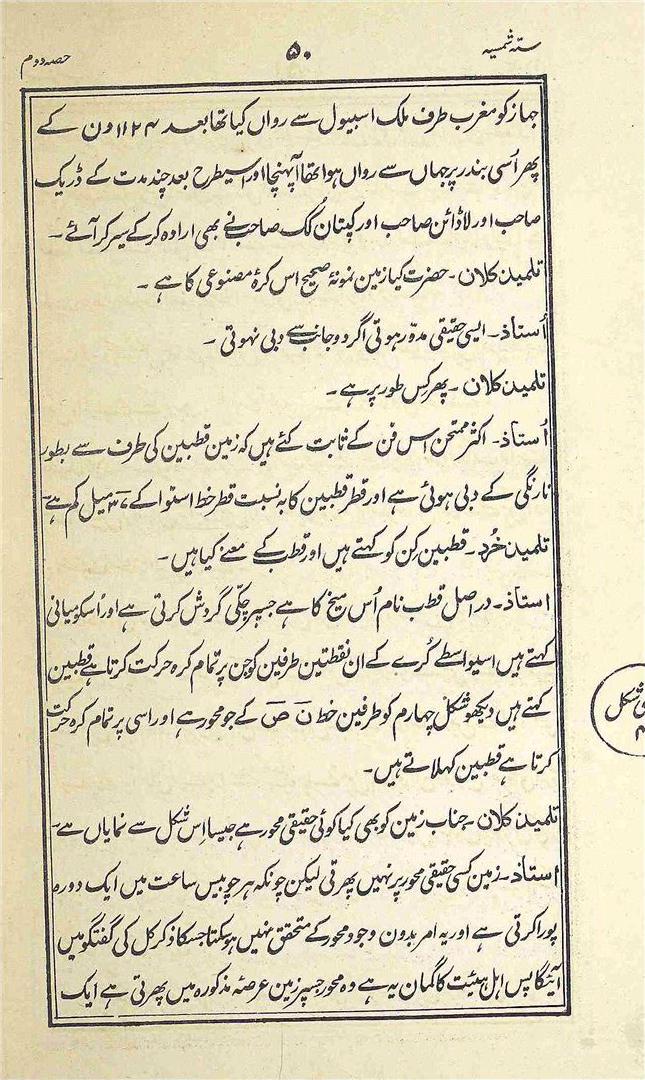 ستہ شمسیہ
۵۰
حصہ دوم
جہاز کو مغرب طرف ملک اسپیول سے رواں کیا تھا بعد ۱۱۲۴ دن کے
پھر اُسی بندر پر جہاں سے رواں ہوا تھا آ پہنچا اور اسیطرح بعد چند مدت کے ڈریک
صاحب اور لاڈائن صاحب اور کپتان کُک صاحب نے بھی ارادہ کر کے سیر کر آئے ۔
تلمیذ کلان ۔ حضرت کیا زمین نمونۂ صحیح اس کرۂ مصنوعی کا ہے ۔
اُستاذ ۔ ایسی حقیقی مدوّر ہوتی اگر دو جانب سے دبی نہوتی ۔
تلمیذ کلان ۔ پھر کس طور پر ہے ۔
اُستاذ ۔ اکثر ممتحن اس فن کے ثابت کئے ہیں کہ زمین قطبین کی طرف سے بطور
نارنگی کے دبی ہوئی ہے اور قطر قطبین کا بہ نسبت قطر خط استوا کے ۳۷ میل کم ہے ۔
تلمیذ خُرد ۔ قطبین کِن کو کہتے ہیں اور قطب کے معنے کیا ہیں ۔
استاذ ۔ در اصل قطب نام اُس میخ کا ہے جسپر چکّی گردش کرتی ہے اور اُسکو میانی
کہتے ہیں اسیواسطے کُرے کے ان نقطتین طرفین کو جن پر تمام کرہ حرکت کرتا ہے قطبین
کہتے ہیں دیکھو شکل چہارم کو طرفین خط نَ صَ کے جو محور ہے اور اسی پر تمام کرہ حرکت
شکل
۴
کرتا ہے قطبین کہلاتے ہیں ۔
تلمیذ کلان ۔ جناب زمین کو بھی کیا کوئی حقیقی محور ہے جیسا اِس شکل سے نمایاں ہے ۔
استاذ ۔ زمین کسی حقیقی محور پر نہیں پھرتی لیکن چونکہ ہر چوبیس ساعت میں ایک دورہ
پورا کرتی ہے اور یہ امر بدون وجود محور کے متحقق نہیں ہو سکتا جسکا ذکر کل کی گفتگو میں
آئیگا پس اہل ہیئت کا گمان یہ ہے وہ محور جسپر زمین عرصۂ مذکورہ میں پھرتی ہے ایک